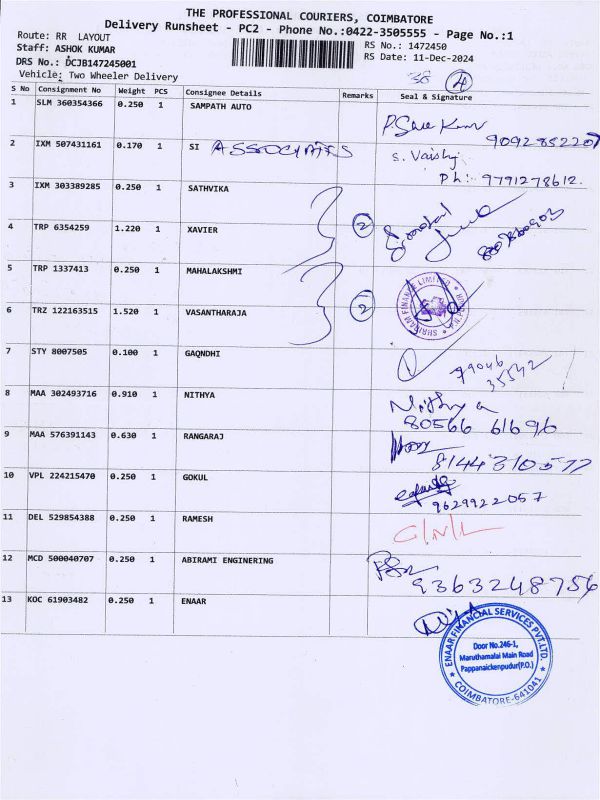 THE PROFESSIONAL COURIERS, COIMBATORE
Delivery Runsheet - PC2 - Phone No.:0422-3505555 - Page No.:1
Route: RR LAYOUT
Staff: ASHOK KUMAR
RS No.: 1472450
DRS No.: DCJB147245001
RS Date: 11-Dec-2024
Vehicle: Two Wheeler Delivery
38 4
S No Consignment No Weight PCS Consignee Details Remarks Seal & Signature
1 SLM 360354366 0.250 1 SAMPATH AUTO
9092852207
2 IXM 507431161 0.170 1 SI ASSOCIATES S. Vaishy
Ph: 9791278612.
3 IXM 303389285 0.250 1 SATHVIKA
4 TRP 6354259 1.220 1 XAVIER 2
5 TRP 1337413 0.250 1 MAHALAKSHMI
6 TRZ 122163515 1.520 1 VASANTHARAJA 2 SHRIRAM FINANCE LIMITED
7 STY 8007505 0.100 1 GAQNDHI
79046
35542
8 MAA 302493716 0.910 1 NITHYA Nithya
80566 61696
9 MAA 576391143 0.630 1 RANGARAJ
8144310577
10 VPL 224215470 0.250 1 GOKUL
9629922057
11 DEL 529854388 0.250 1 RAMESH C/N/L
12 MCD 500040707 0.250 1 ABIRAMI ENGINERING
9363248756
13 KOC 61903482 0.250 1 ENAAR
ENAAR FINANCIAL SERVICES PVT.LTD.
Door No.246-1,
Maruthamalai Main Road
Pappanaickenpudur(P.O.)
COIMBATORE-641041